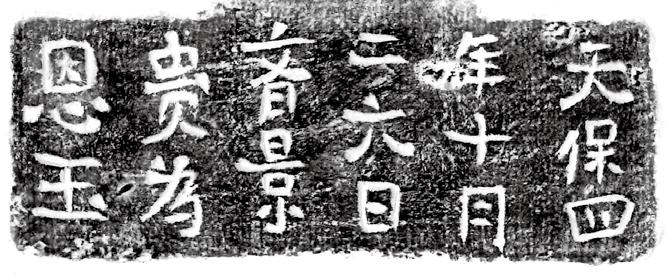 天保四
年十月
二六日
景
贵為
恩玉